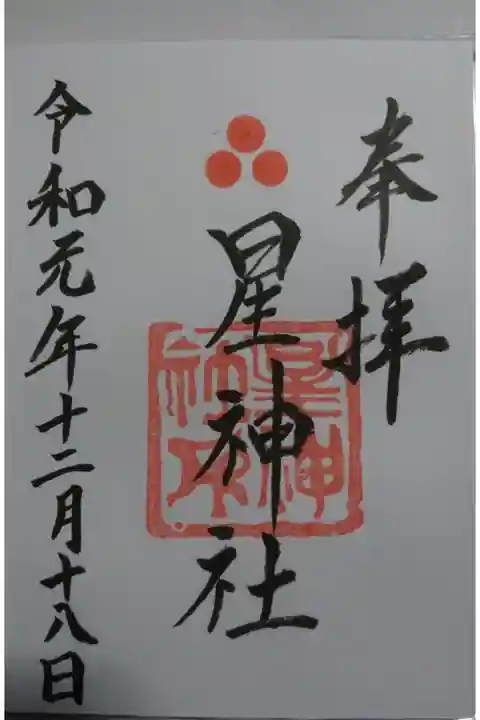 奉拝
星神社
星神社印
令和元年十二月十八日